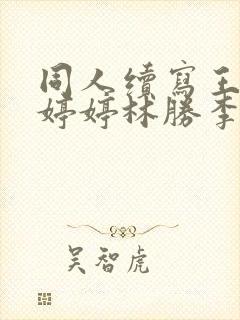 同人續寫王
婷婷林勝李
吳智虎